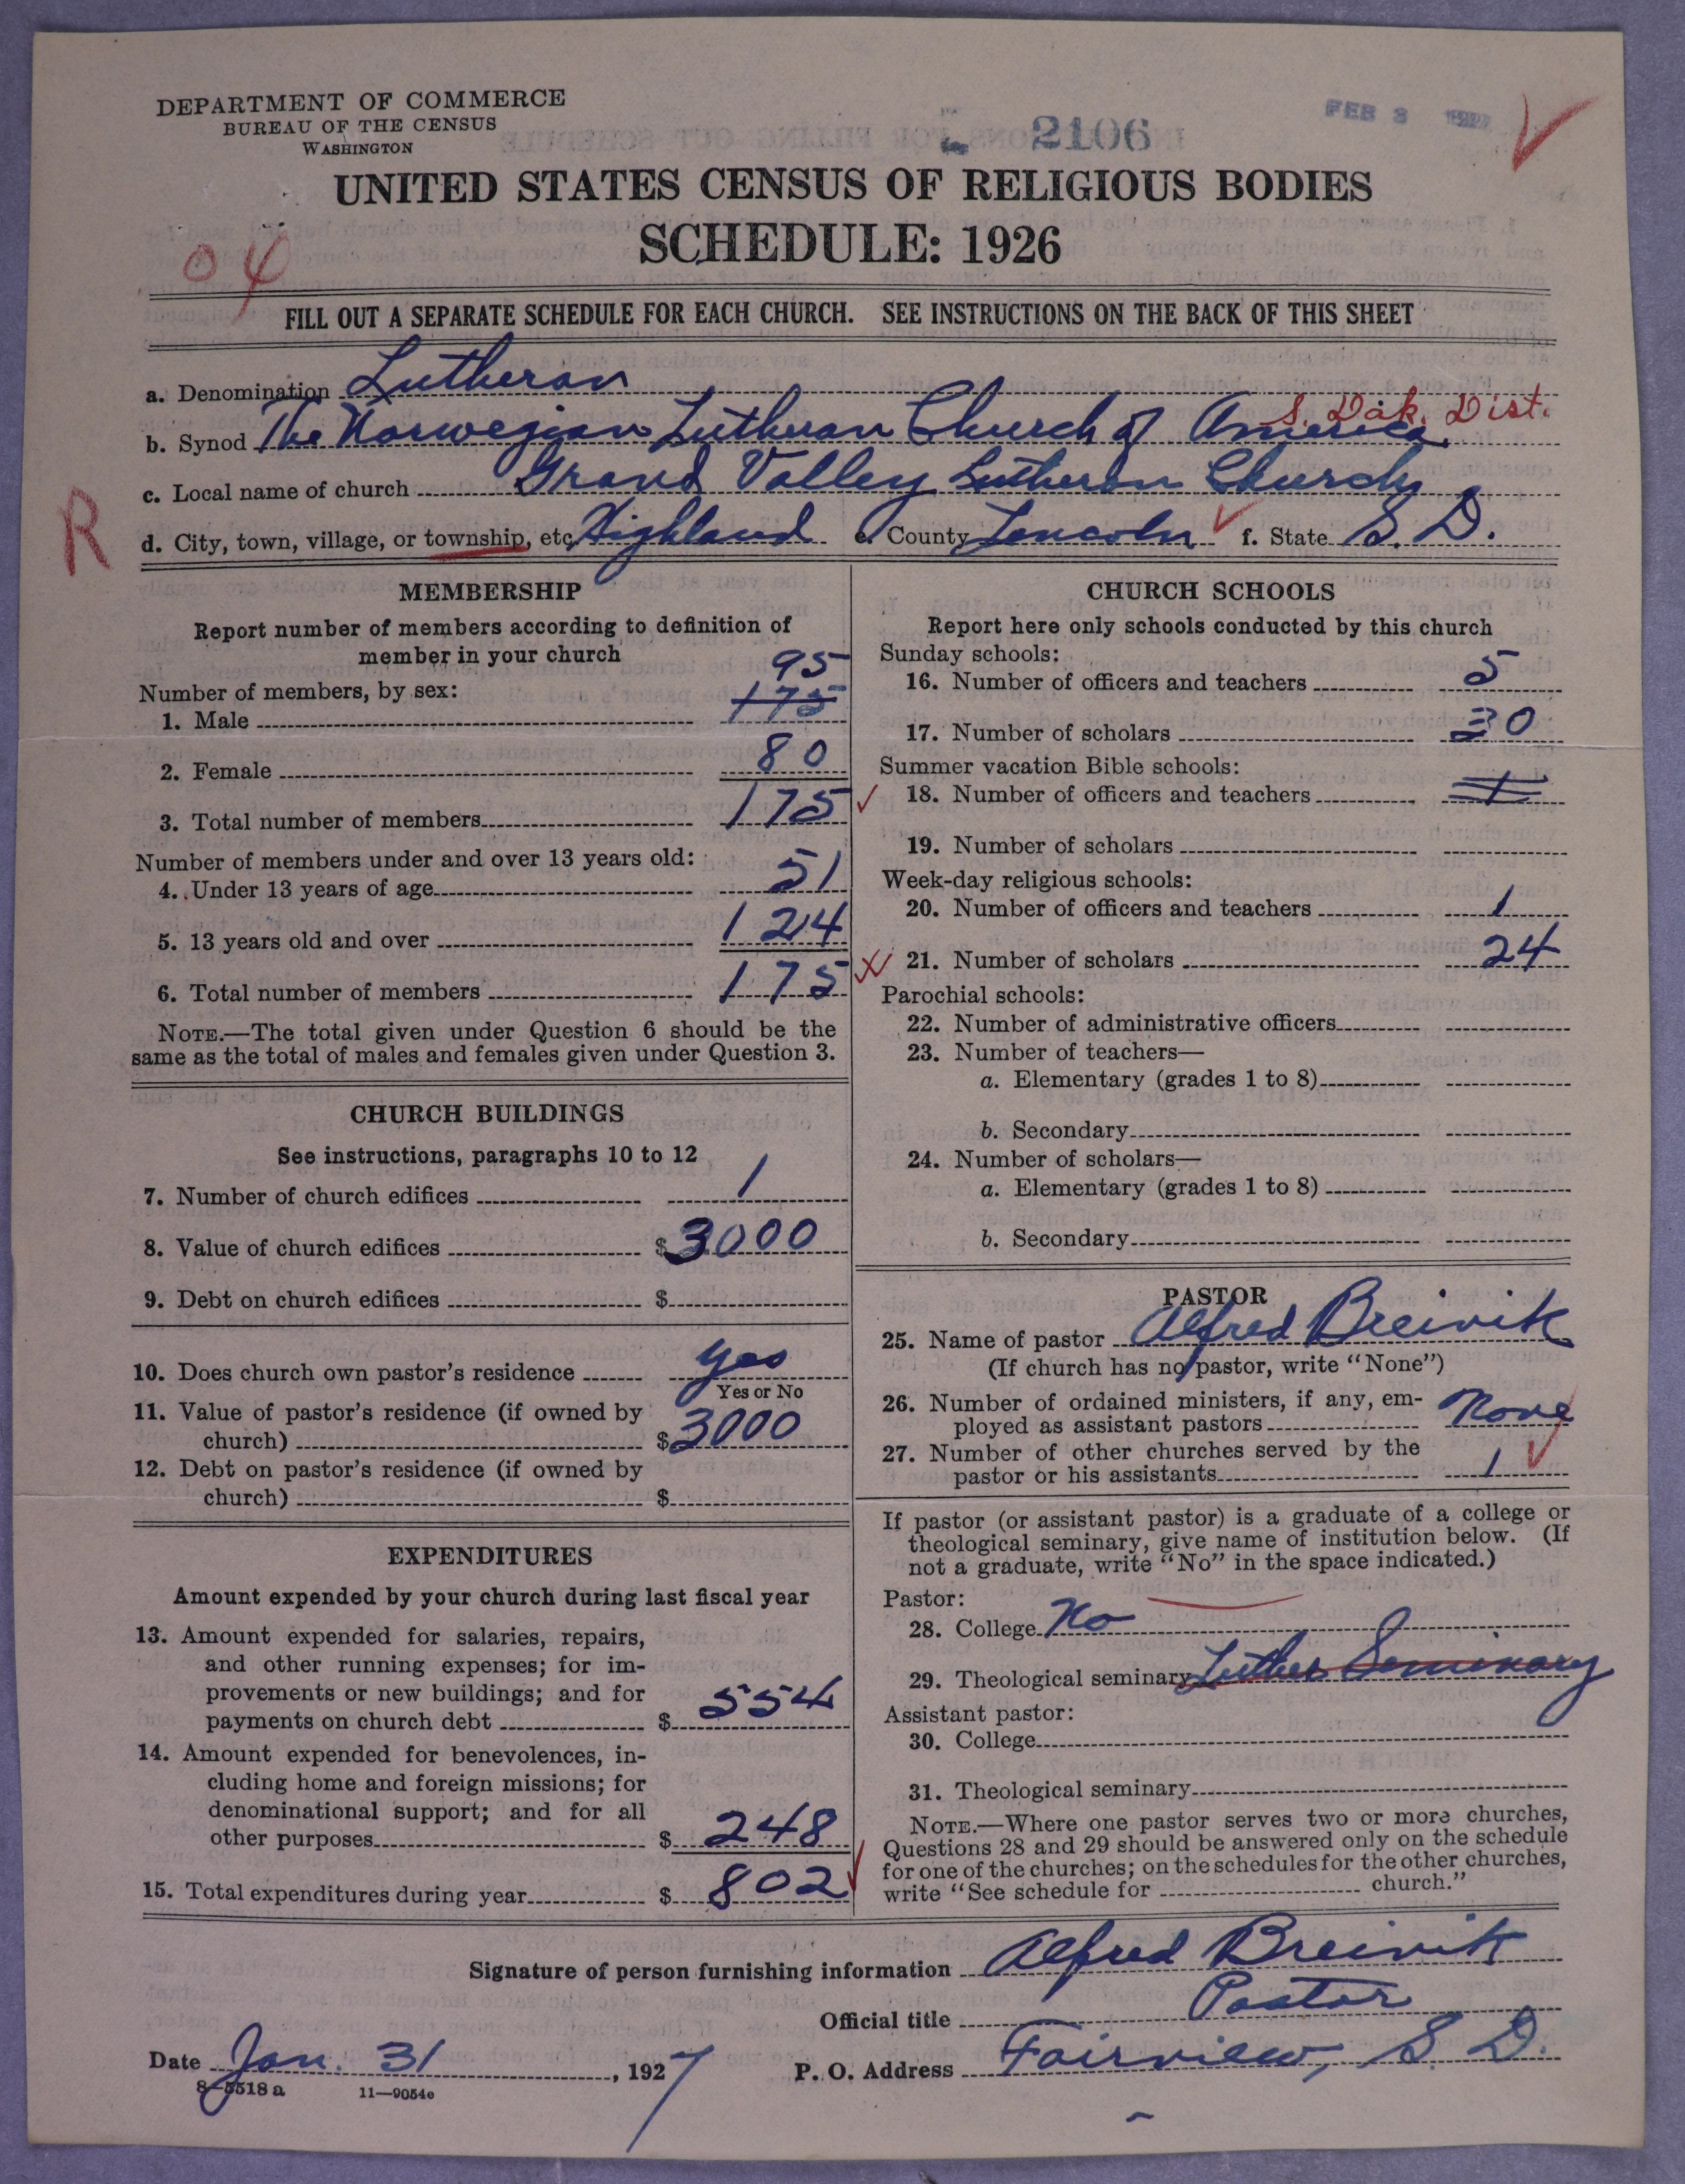 DEPARTMENT OF COMMERCE
BUREAU OF THE CENSUS
WASHINGTON
2106
FEB 3 1927
UNITED STATES CENSUS OF RELIGIOUS BODIES
SCHEDULE: 1926
04
FILL OUT A SEPARATE SCHEDULE FOR EACH CHURCH. SEE INSTRUCTIONS ON THE BACK OF THIS SHEET
a. Denomination Lutheran
S. Dak. Dist.
b. Synod The Norwegian Lutheran Church of America
c. Local name of church Grand Valley Lutheran Church
R
d. City, town, village, or township, etc. Highland e. County Lincoln f. State S. D.
MEMBERSHIP
Report number of members according to definition of
member in your church
Number of members, by sex:
95
1. Male 175
2. Female 80
3. Total number of members 175
Number of members under and over 13 years old:
4. Under 13 years of age 51
5. 13 years old and over 124
6. Total number of members 175
NOTE.—The total given under Question 6 should be the
same as the total of males and females given under Question 3.
CHURCH BUILDINGS
See instructions, paragraphs 10 to 12
7. Number of church edifices 1
8. Value of church edifices $3000
9. Debt on church edifices $
10. Does church own pastor's residence yes
Yes or No
11. Value of pastor's residence (if owned by
church) $3000
12. Debt on pastor's residence (if owned by
church) $
EXPENDITURES
Amount expended by your church during last fiscal year
13. Amount expended for salaries, repairs,
and other running expenses; for im-
provements or new buildings; and for
payments on church debt $ 554
14. Amount expended for benevolences, in-
cluding home and foreign missions; for
denominational support; and for all
other purposes $ 248
15. Total expenditures during year $ 802
CHURCH SCHOOLS
Report here only schools conducted by this church
Sunday schools:
16. Number of officers and teachers 5
17. Number of scholars 30
Summer vacation Bible schools:
18. Number of officers and teachers 1
19. Number of scholars
Week-day religious schools:
20. Number of officers and teachers 1
21. Number of scholars 24
Parochial schools:
22. Number of administrative officers
23. Number of teachers—
a. Elementary (grades 1 to 8)
b. Secondary
24. Number of scholars—
a. Elementary (grades 1 to 8)
b. Secondary
PASTOR
25. Name of pastor Alfred Breivik
(If church has no pastor, write "None")
26. Number of ordained ministers, if any, em-
ployed as assistant pastors None
27. Number of other churches served by the
pastor or his assistants 1
If pastor (or assistant pastor) is a graduate of a college or
theological seminary, give name of institution below. (If
not a graduate, write "No" in the space indicated.)
Pastor:
28. College No
29. Theological seminary Luther Seminary
Assistant pastor:
30. College
31. Theological seminary
NOTE.—Where one pastor serves two or more churches,
Questions 28 and 29 should be answered only on the schedule
for one of the churches; on the schedules for the other churches,
write "See schedule for church."
Signature of person furnishing information Alfred Breivik
Official title Pastor
Date Jan. 31, 1927 P. O. Address Fairview, S. D.
8-5518 a 11—9054e